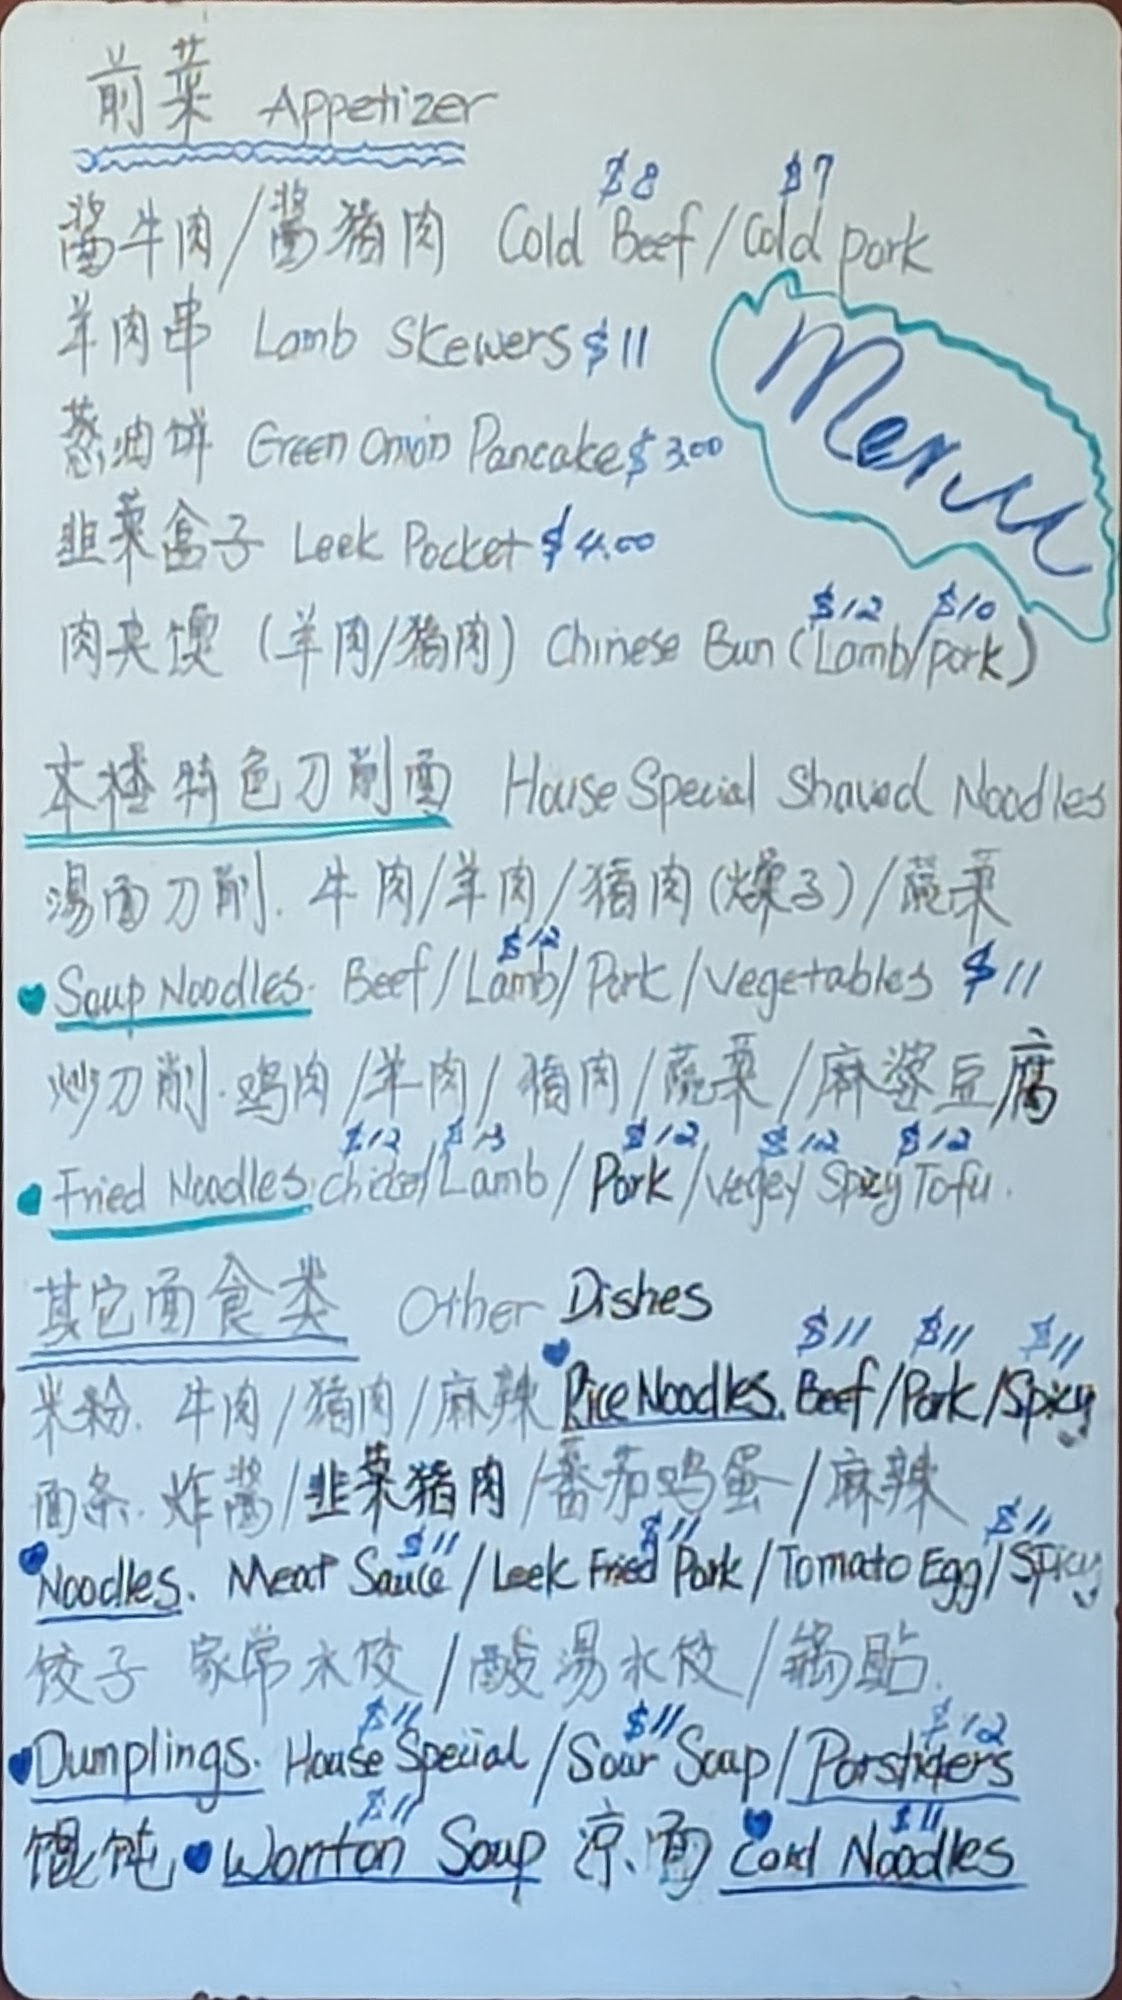 前菜 Appetizer
$8 $7
酱牛肉/酱猪肉 Cold Beef/Cold pork
羊肉串 Lamb Skewers $11
葱油饼 Green Onion Pancake $3.00
Menu
韭菜盒子 Leek Pocket $4.00
$12 $10
肉夹馍 (羊肉/猪肉) Chinese Bun (Lamb/pork)
本楼特色刀削面 House Special Shaved Noodles
汤面刀削. 牛肉/羊肉/猪肉(燥子)/蔬菜
$12
Soup Noodles. Beef/Lamb/Pork/Vegetables $11
炒刀削.鸡肉/羊肉/猪肉/蔬菜/麻婆豆腐
$12 $13 $12 $12 $12
Fried Noodles. /Lamb/Pork/Vegey Spicy Tofu.
其它面食类 Other Dishes
$11 $11 $11
米粉. 牛肉/猪肉/麻辣 Rice Noodles. Beef/Pork/Spicy
面条. 炸酱/韭菜猪肉/番茄鸡蛋/麻辣
$11 $11 $11
Noodles. Meat Sauce/Leek Fried Pork/Tomato Egg/Spicy
饺子 家常水饺/酸汤水饺/锅贴.
$11 $11 $12
Dumplings. House Special/Sour Soup/Porstickers
$11 $11
馄饨 Wonton Soup 凉面 Cold Noodles